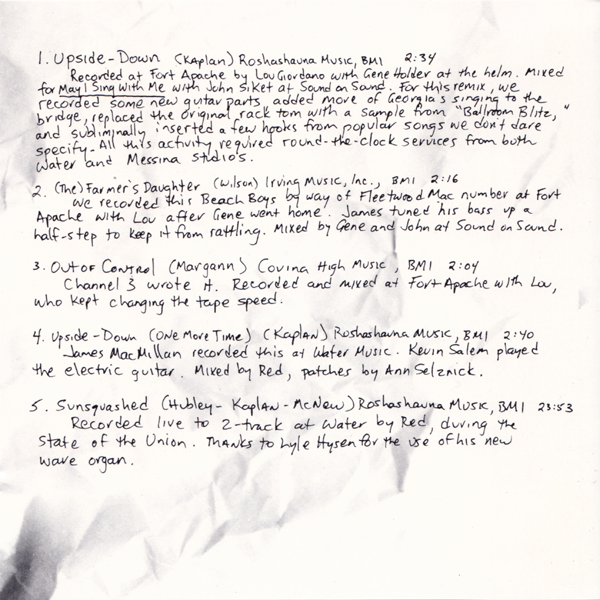 1. Upside-Down (Kaplan) Roshashauna Music, BMI 2:34
Recorded at Fort Apache by Lou Giordano with Gene Holder at the helm. Mixed
for May I Sing With Me with John Siket at Sound on Sound. For this remix, we
recorded some new guitar parts, added more of Georgia's singing to the
bridge, replaced the original rack tom with a sample from "Ballroom Blitz,"
and subliminally inserted a few hooks from popular songs we don't dare
specify. All this activity required round-the-clock services from both
Water and Messina studio's.
2. (The) Farmer's Daughter (Wilson) Irving Music, Inc., BMI 2:16
We recorded this Beach Boys by way of Fleetwood Mac number at Fort
Apache with Lou after Gene went home. James tuned his bass up a
half-step to keep it from rattling. Mixed by Gene and John at Sound on Sound.
3. Out of Control (Margann) Covina High Music, BMI 2:04
Channel 3 wrote it. Recorded and mixed at Fort Apache with Lou,
who kept changing the tape speed.
4. Upside-Down (One More Time) (Kaplan) Roshashauna Music, BMI 2:40
James MacMillan recorded this at Water Music. Kevin Salem played
the electric guitar. Mixed by Red, patches by Ann Selznick.
5. Sunsquashed (Hubley-Kaplan-McNew) Roshashauna Music, BMI 23:53
Recorded live to 2-track at Water by Red, during the
State of the Union. Thanks to Lyle Hysen for the use of his new
wave organ.